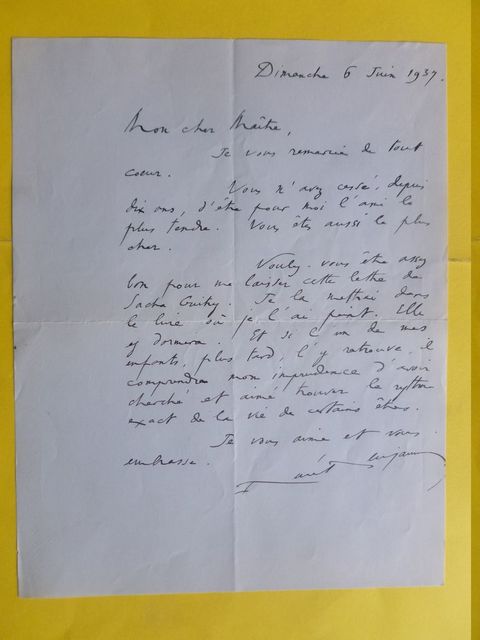 Dimanche 6 Juin 1937.
Mon cher Maître,
Je vous remercie de tout
coeur.
Vous n'avez cessé, depuis
dix ans, d'être pour moi l'ami le
plus tendre. Vous êtes aussi le plus
cher.
Voulez-vous être assez
bon pour me laisser cette lettre de
Sacha Guitry. Je la mettrai dans
le livre où je l'ai peint. Elle
y dormira. Et si l'un de mes
enfants, plus tard, l'y retrouve, il
comprendra mon imprudence d'avoir
cherché et aimé trouver le rythme
exact de la vie de certains êtres.
Je vous aime et vous
embrasse.